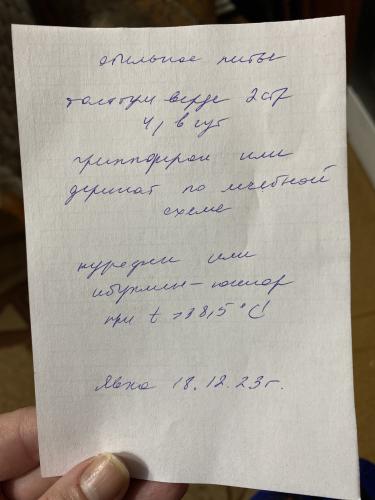 обильное питье
тантум верде 2стр
4р в сут
гриппферон или
деринат по лечебной
схеме
нурофен или
ибуклин-юниор
при t >38,5°C!
Явка 18.12.23г.